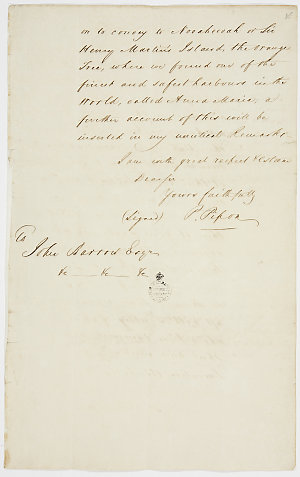 on to convey to Nooaheevah or Sir
Henry Martin's Island, the Orange
Tree, where we found one of the
finest and safest harbours in the
World, called Anna Maria, a
further account of this will be
inserted in my nautical Remarks.
I am with great respect & Esteem
Dear Sir
Yours faithfully
(Signed) P. Pipon
To
John Barrow Esqre
&c &c &c